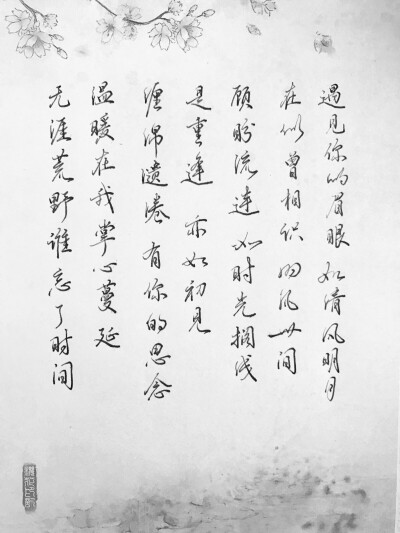 遇见你的眉眼 如清风明月
在似曾相识的凡世间
顾盼流连 如时光搁浅
是重逢 亦如初見
缠绵缱绻 有你的思念
温暖在我掌心蔓延
无涯荒野谁忘了时间